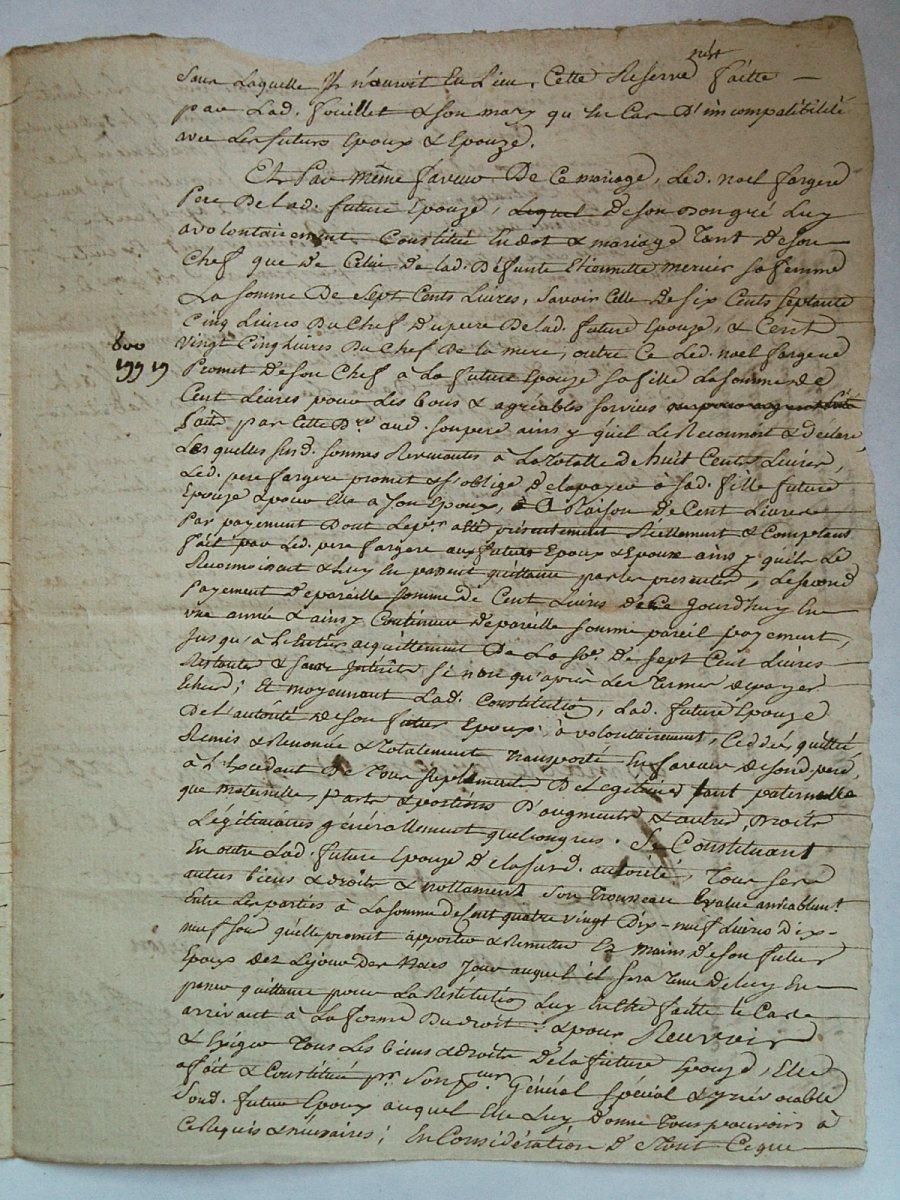 n'est
sans Laquelle Il n'auroit Eu Lieu. Cette Reserve faitte
par Lad. fouillet & son mary qu'En Cas D'incompatibilité
avec Les futurs Epoux & Epouze.
Et Par même faveur De Ce mariage, Led. noel fargere
Pere De Lad. future Epouze, Lequel De son Bon gré Luy
a volontairement Constitué En dot & mariage Tant De son
Chef que De Celui De Lad. Deffunte Etiennette mercier sa femme
La somme De Sept Cents Livres, Savoir Celle De six Cents septante
Cinq Livres Du Chef D'u pere De Lad. future Epouze, & Cent
vingt Cinq Livres Du Chef De la mere, outre Ce Led. noel fargere
800
199 19
Promet De son Chef à La future Epouze sa fille La somme De
Cent Livres pour Les bons & agréables services
faits par Cette Dre aud. son pere ainsy qu'il Le Reconnoit & declare
Lesquelles susd. sommes Revenantes à La Totalle De huit Cents Livres,
Led. pere fargere promet & s'oblige De Lapayer à Sad. fille future
Epouze & pour Elle à son Epoux, à Raison De Cent Livres
Par payement Dont Le pr a été présentement Réellement & Comptant
fait par Led. pere fargere aux futurs Epoux & Epouze ainsy qu'ils Le
Reconnoissent & Luy En passent quittance par les presentes, Le second
Payement De pareille somme De Cent Livres De Ce Jourd'huy En
une année & ainsy Continuer De pareille somme pareil payement,
Jusqu'à L'Entier acquittement De La So.e De sept Cent Livres
Restante & sans Intérêts si non qu'après Les Termes De payer
Echus; Et moyennant Lad. Constitution, Lad. future Epouze
De L'autorité De son futur Epoux, à volontairement, Ceddé, quitté
Remis & Renoncé & Totalement Transporté En faveur De sond. pere,
à L'Excedant De Tous supléments De Légitime tant paternelle
que maternelle, parts & portions D'augment & autres Droits
Légitimaires généralement quelconques. Se Constituant
En outre Lad. future Epouze De la susd. autorité, Tous ses
autres biens & droits & nottament Son Trousseau Evalué amiablemt
Entre Les parties à La somme De Cent quatre vingt Dix-neuf Livres dix-
neuf sou qu'elle promet apporter & Remettre Ez mains De son futur
Epoux Dez Le jour Des Noces Jour auquel il sera Tenu De luy En
passer quittance pour La Restitution Luy En Etre faitte le Cas
arrivant à La forme Du droit: & pour Recevoir
& Exiger Tous Les biens & Droits De La future Epouze, Elle
a fait & Constitué pr. Son pr.eur Général Spécial & irrévocable
Sond. futur Epoux auquel Elle Luy Donne Tous pouvoirs à
Ce Requis & nécésaires; En Considération De Tout Ceque